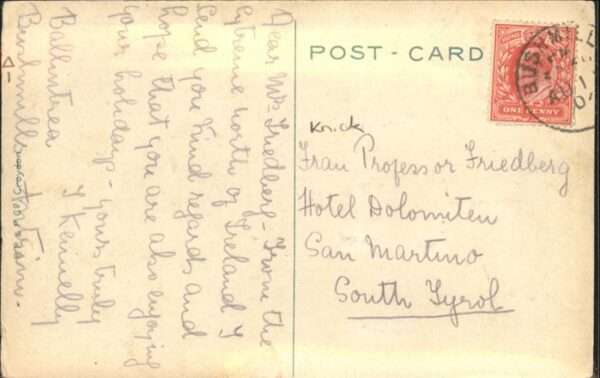 POST - CARD
Dear Mrs Friedberg - From the
Extreme north of Ireland I
send you kind regards and
hope that you are also enjoying
your holidays - yours truly
J Kennelly
Ballintrea
Bushmills
Knick
Frau Professor Friedberg
Hotel Dolomiten
San Martino
South Tyrol
BUSHMILLS
ONE PENNY